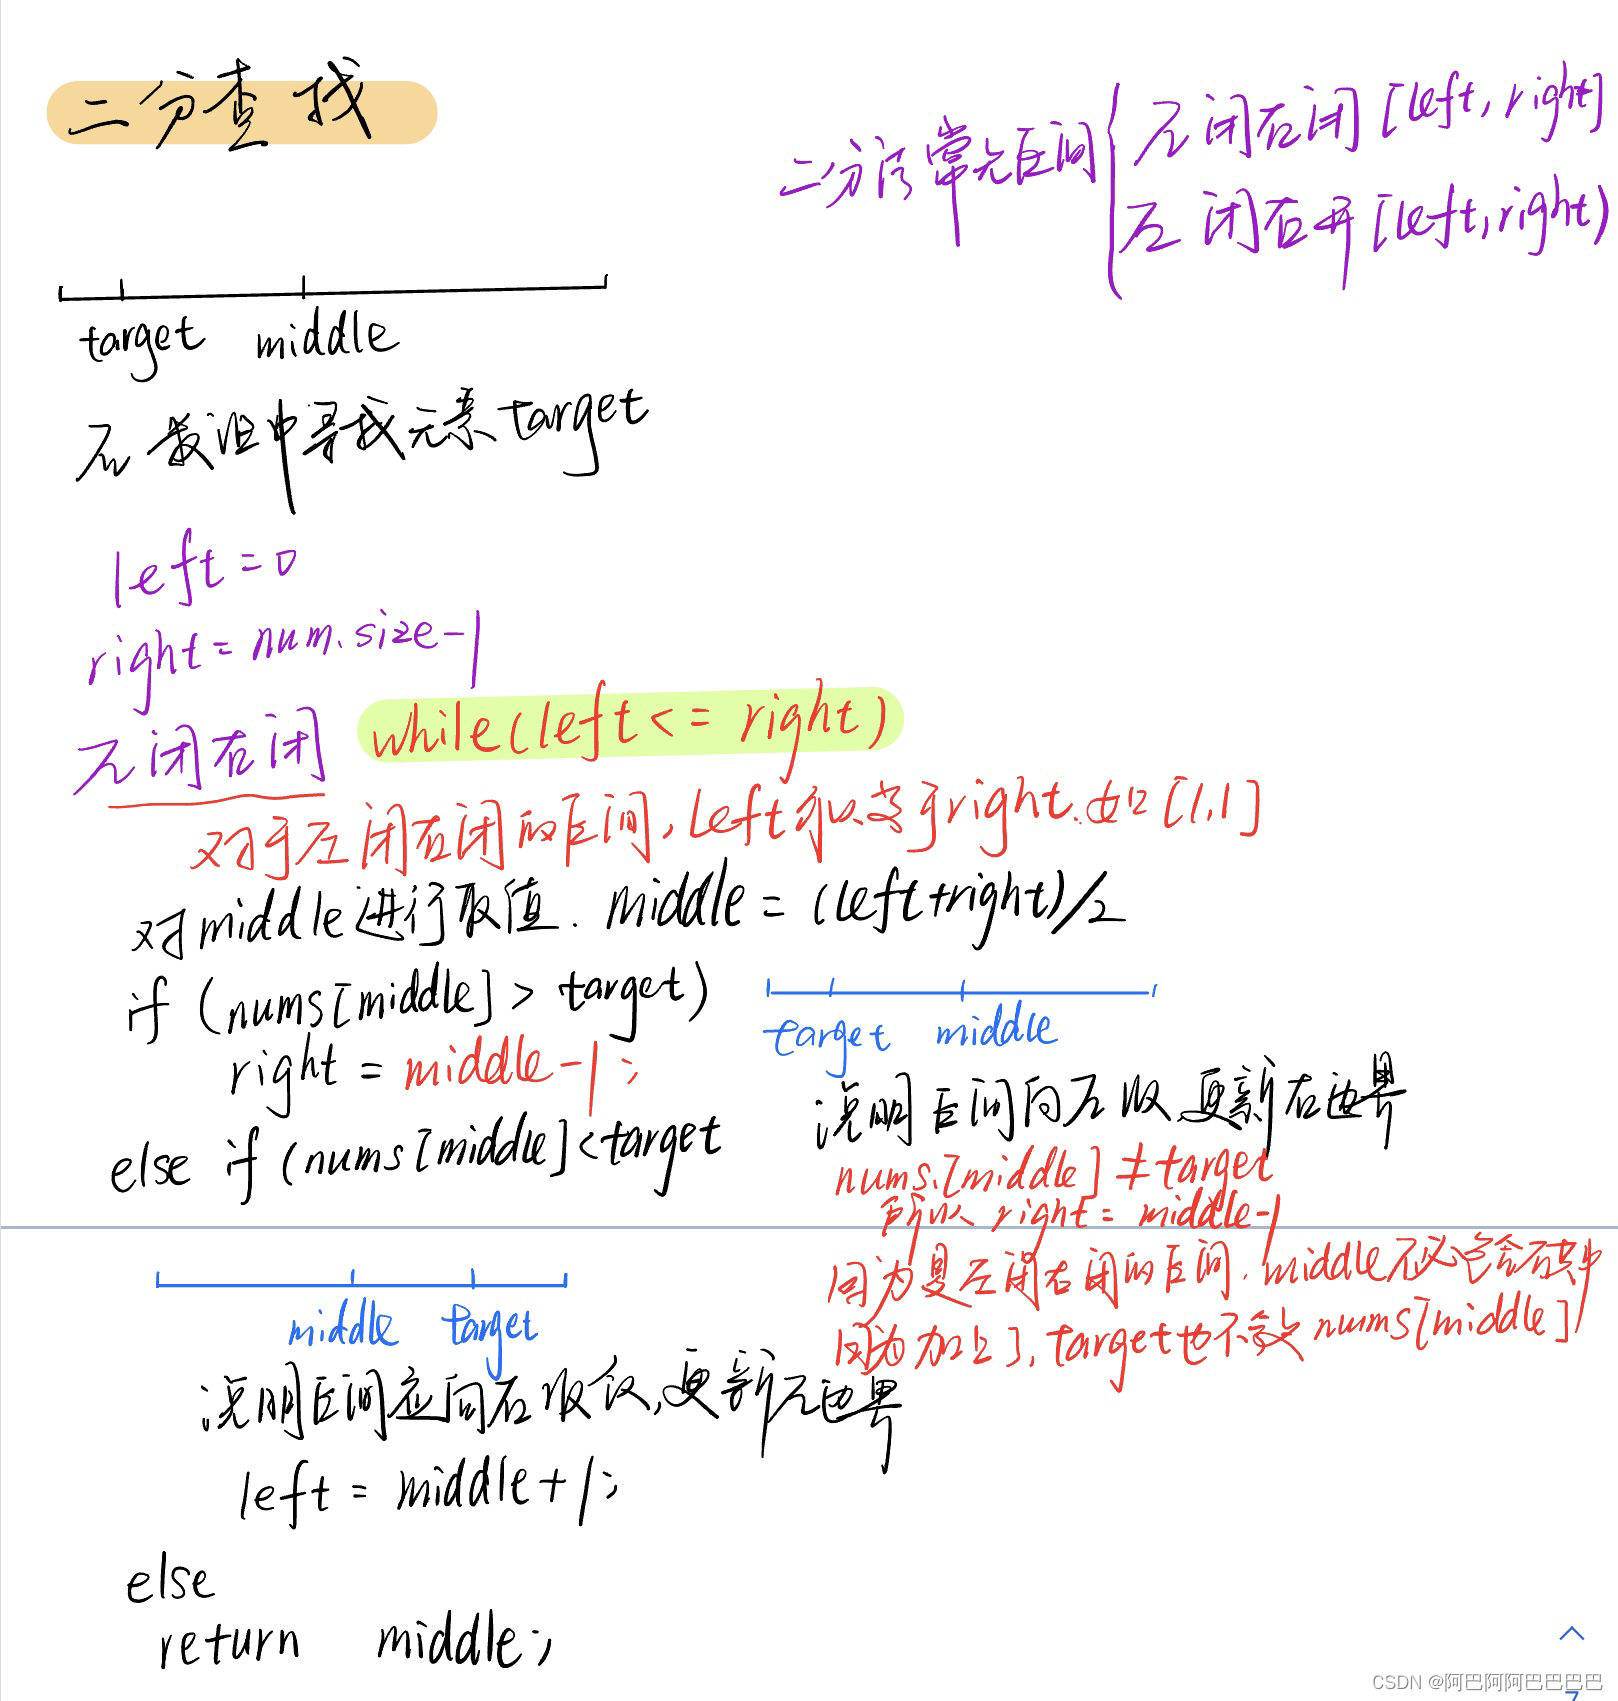 二分查找
二分法常见区间
左闭右闭 [left, right]
左闭右开 [left, right)
target middle
在数组中寻找元素target
left = 0
right = num.size-1
左闭右闭 while(left <= right)
对于左闭右闭的区间, left可以等于right.如[1,1]
对middle进行取值. middle = (left+right)/2
if (nums[middle] > target)
right = middle-1;
target middle
说明区间向左收,更新右边界
nums[middle] ≠ target
所以 right = middle-1
因为是左闭右闭的区间. middle不必包含在其中
因为加上了, target也不会 nums[middle]
else if (nums[middle]<target
middle target
说明区间应向右收敛,更新左边界
left = middle+1;
else
return middle;
CSDN @阿巴阿阿巴巴巴巴